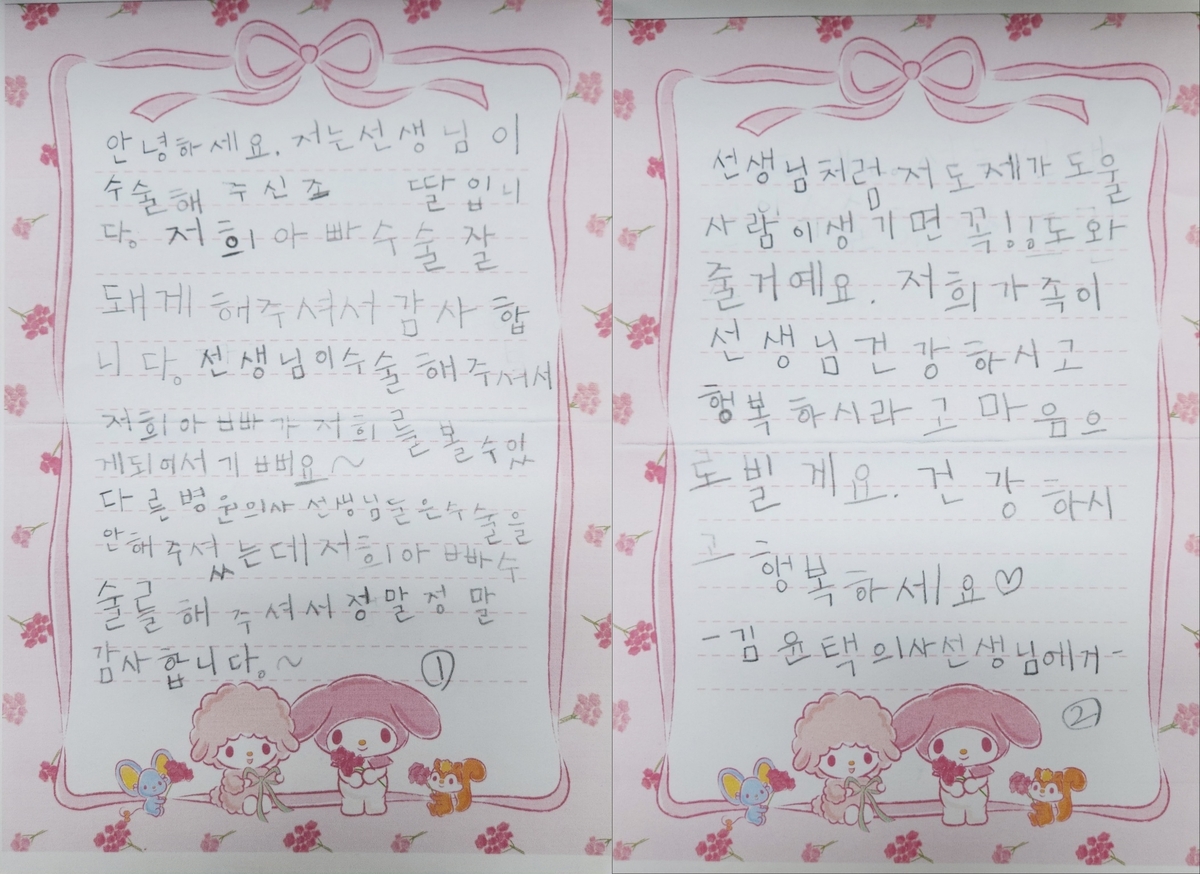 안녕하세요. 저는선생님이
수술해 주신조 딸입니
다. 저희아빠수술잘
돼게 해주셔서감사합
니다. 선생님이수술해주셔서
저희아빠가 저희를볼수있
게되어서기뻐요~
다른병원의사선생님들은수술을
안해주셨는데저희아빠수
술를해주셔서정말정말
감사합니다.~ ①
선생님처럼 저도제가도울
사람이생기면꼭!!도와
줄거예요. 저희가족이
선생님건강하시고
행복하시라고마음으
로빌게요. 건강하시
고행복하세요♡
-김윤택의사선생님에게-
②